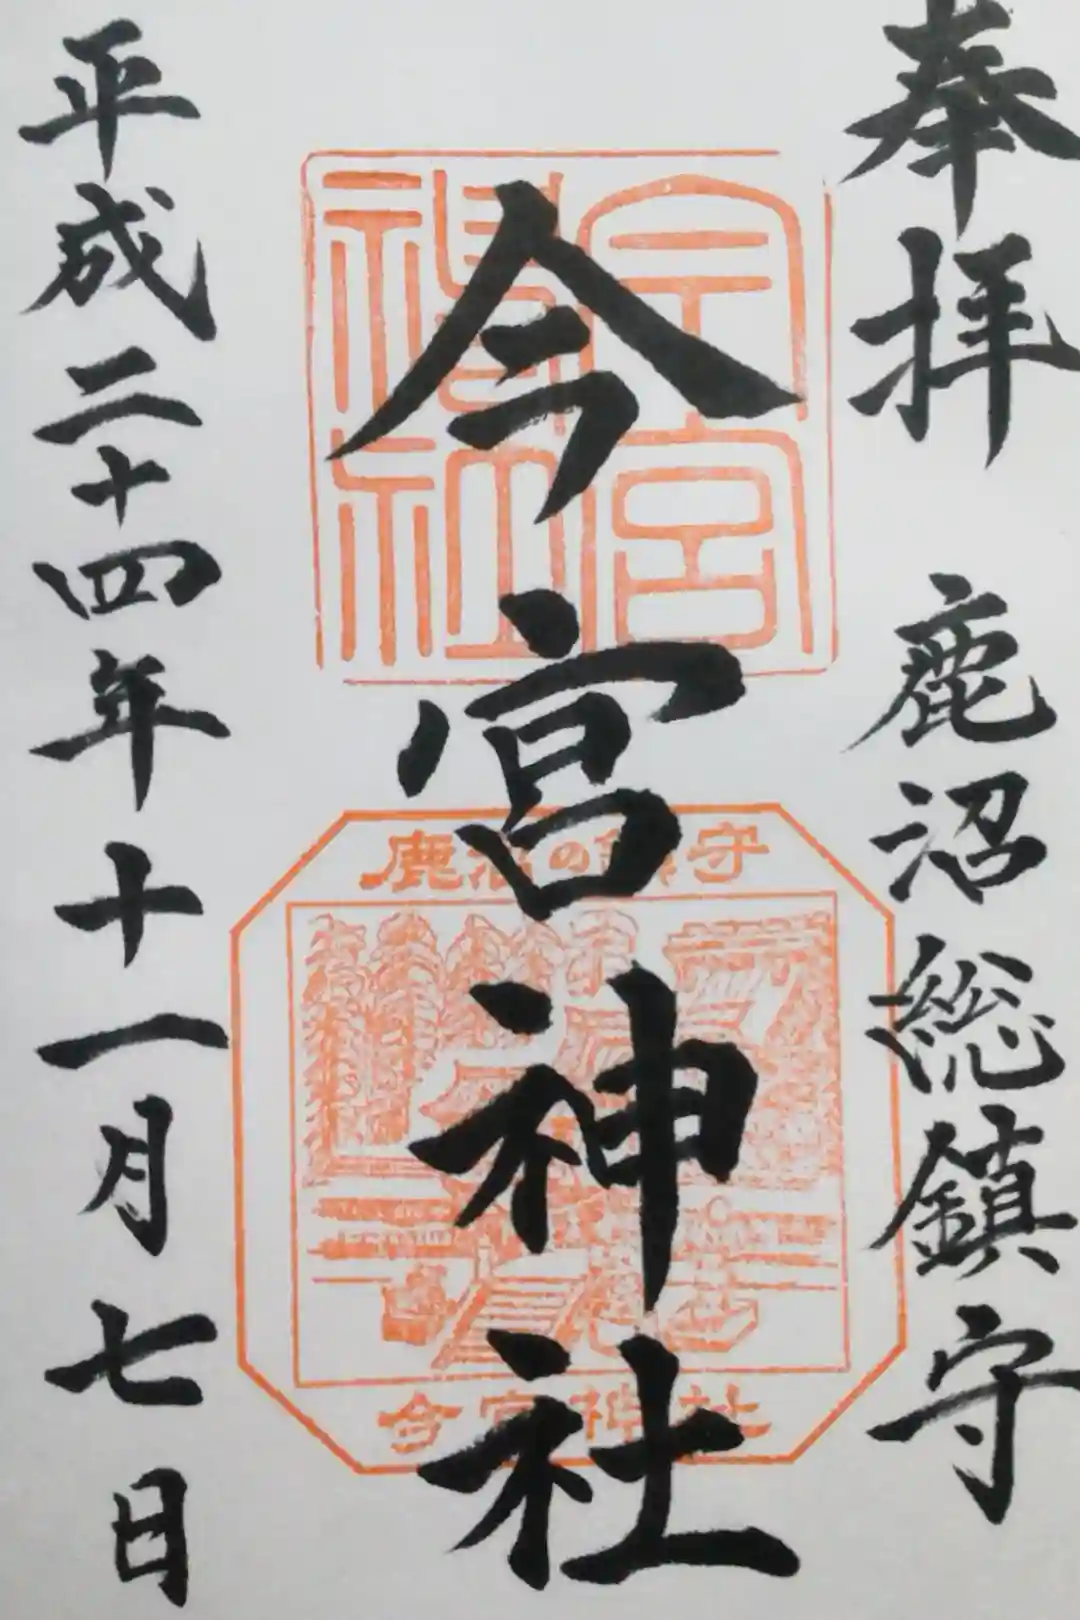 奉拝　鹿沼総鎮守
今宮神社
平成二十四年十一月七日
今宮神社
鹿沼の鎮守
今宮神社